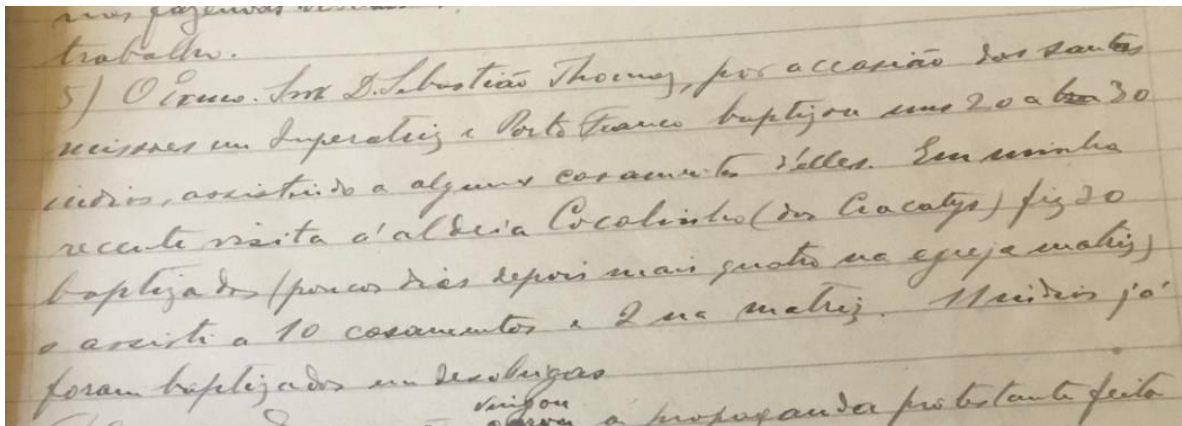 nas fazendas
trabalho.
5) O Exmo. Snr D. Sebastião Thomaz, por occasião das santas
missões em Imperatriz e Porto Franco baptizou uns 20 a 30
indios, assistindo a alguns casamentos d'elles. Em minha
recente visita á aldeia Cocalinho (dos Cracatys) fiz 30
baptizados (poucos dias depois mais quatro na egreja matriz)
e assisti a 10 casamentos e 2 na matriz. 11 indios já
foram baptizados em desobrigas
vingou
a propaganda protestante feita